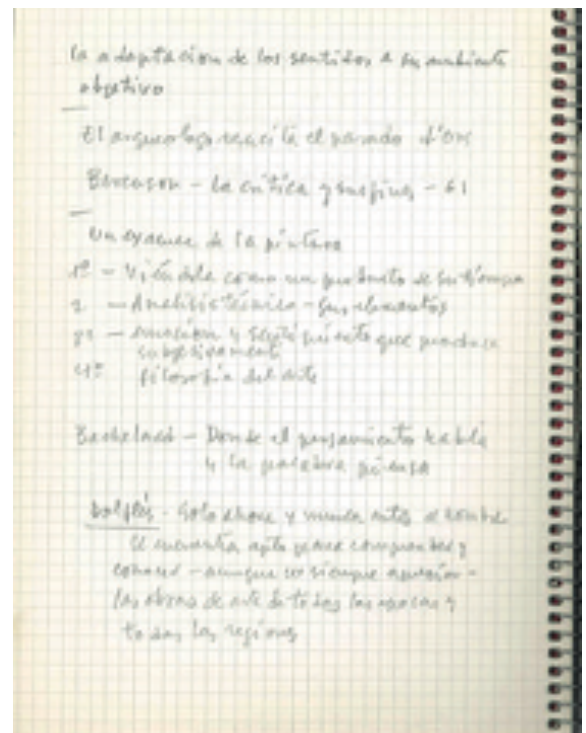 la adaptacion de los sentidos a su ambiente
objetivo
El arqueologo el pasado d'Ors
Berenson - la critica y sus fines - 61
Un examen de la pintura
1º - Viendola como un producto de su tiempo
2 - Analisis técnico - sus elementos
- emocion y sentimiento que produce
subjetivamente
4º filosofia del arte
Bachelard - Donde el pensamiento habla
y la palabra piensa
Dorfles - Solo ahora y nunca antes el hombre
se encuentra apto para comprender y
conocer - aunque no siempre apreciar -
las obras de arte de todas las epocas y
todas las regiones